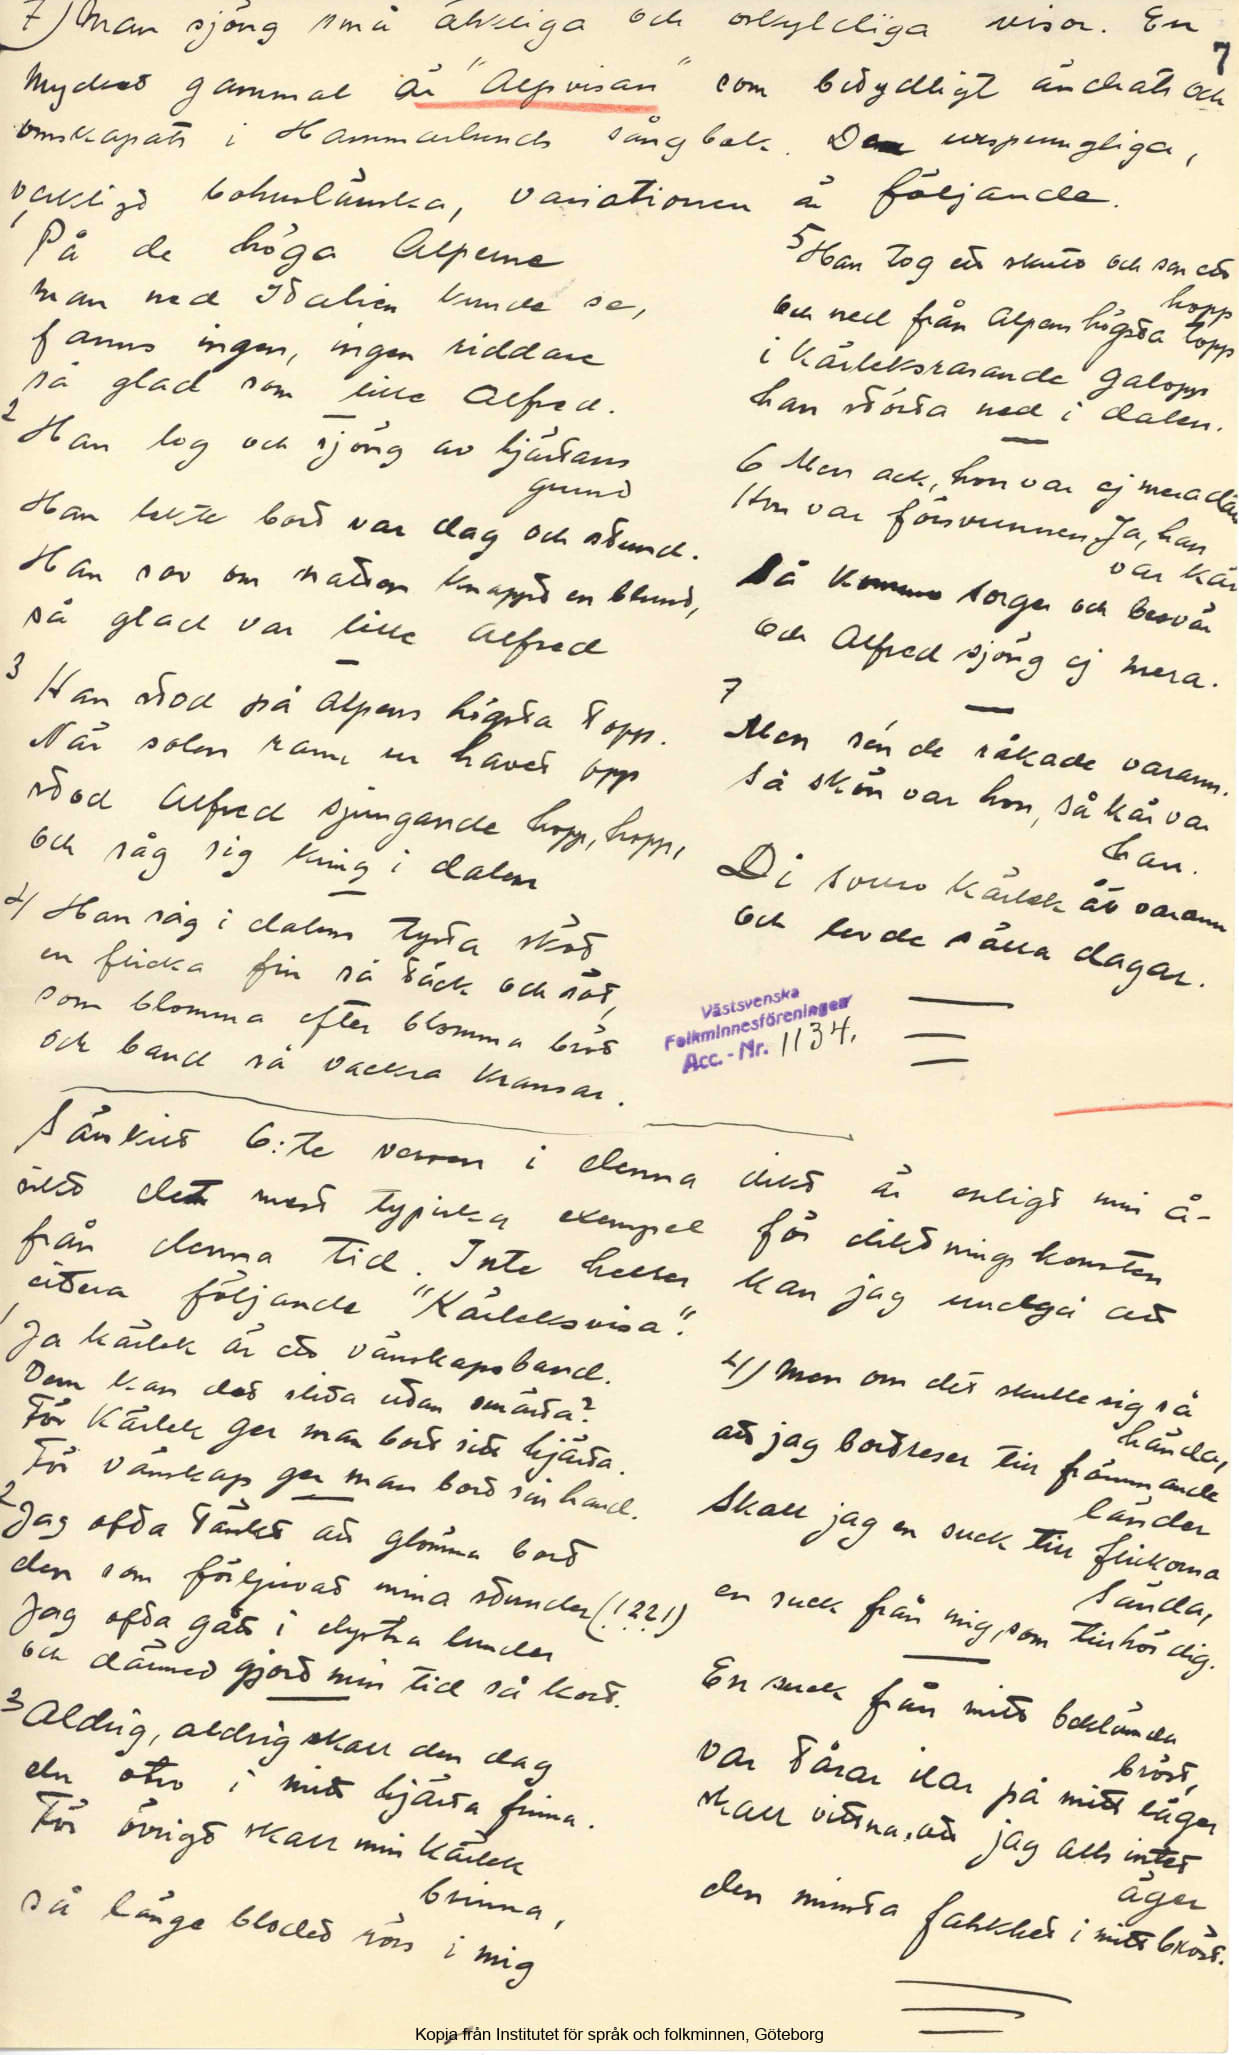 7) Man sjöng små älskliga och oskyldiga visor. En
7
mycket gammal är "Alpvisan" som betydligt ändrats och
omskapats i Hammarlunds sångbok. Den ursprungliga,
verkligt bohuslänska, variationen är följande.
1
På de höga Alperne
man ned Italien kunde se,
fanns ingen, ingen riddare
så glad som lille Alfred.
2 Han log och sjöng av hjärtans
grund
Han lekte bort var dag och stund.
Han sov om natten knappt en blund,
så glad var lille Alfred
3 Han stod på Alpens högsta topp.
När solen rann ur havet opp
stod Alfred sjungande hopp, hopp,
och såg sig kring i dalen
4) Han såg i dalens tysta sköt
en flicka fin så täck och söt,
som blomma efter blomma bröt
och band så vackra kransar.
5 Han tog ett skutt och sen ett
hopp
och ned från Alpens högsta topp
i kärleksrasande galopp
han störta ned i dalen.
6 Men ack, hon var ej mera där
Hon var försvunnen. Ja, han
var kär
Så kommo sorger och besvär
och Alfred sjöng ej mera.
7
Men sén de råkade varann.
Så skön var hon, så kär var
han.
Di svuro kärlek åt varann
och levde sälla dagar.
Västsvenska
Folkminnesföreningen
Acc.-Nr. 1134.
Särskilt 6:te versen i denna dikt är enligt min å-
sikt det mest typiska exempel för diktningskonsten
från denna tid. Inte heller kan jag undgå att
citera följande "Kärleksvisa".
1
Ja kärlek är ett vänskapsband.
Vem kan det slita utan smärta?
För kärlek ger man bort sitt hjärta.
För vänskap ger man bort sin hand.
2
Jag ofta tänkt att glömma bort
den som förljuvat mina stunder (!??!)
Jag ofta gått i dystra lunder
och därmed gjort min tid så kort.
3 Aldrig, aldrig skall den dag
du otro i mitt hjärta finna.
För övrigt skall min kärlek
brinna,
så länge blodet rörs i mig
4) Men om det skulle sig så
hända,
att jag bortreser till främmande
länder
Skall jag en suck till flickorna
sända,
en suck från mig, som tillhör dig.
En suck från mitt beklämda
bröst,
var tårar ilar på mitt läger
skall vittna, att jag alls intet
äger
den minsta falskhet i mitt bröst.
Kopia från Institutet för språk och folkminnen, Göteborg